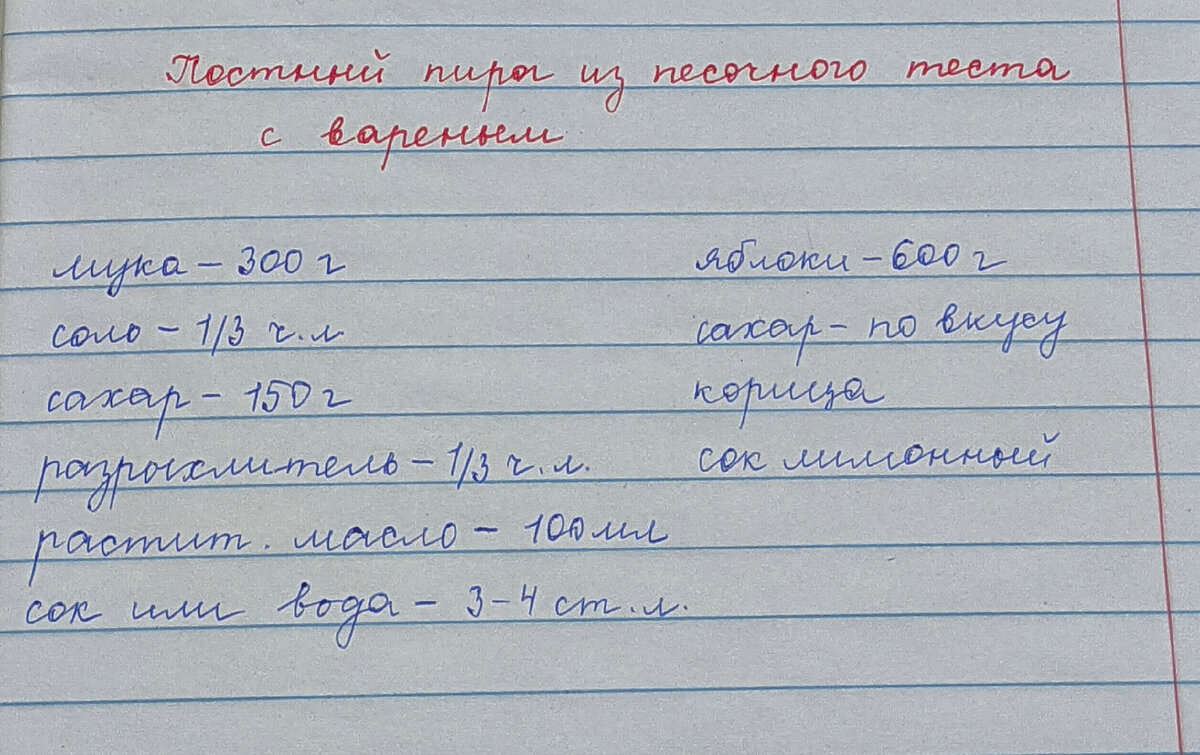 Постный пирог из песочного теста
с вареньем
мука – 300 г
соль – 1/3 ч.л
сахар – 150 г
разрыхлитель – 1/3 ч.л.
растит. масло – 100 мл
сок или вода – 3-4 ст.л.
яблоки – 600 г
сахар – по вкусу
корица
сок лимонный